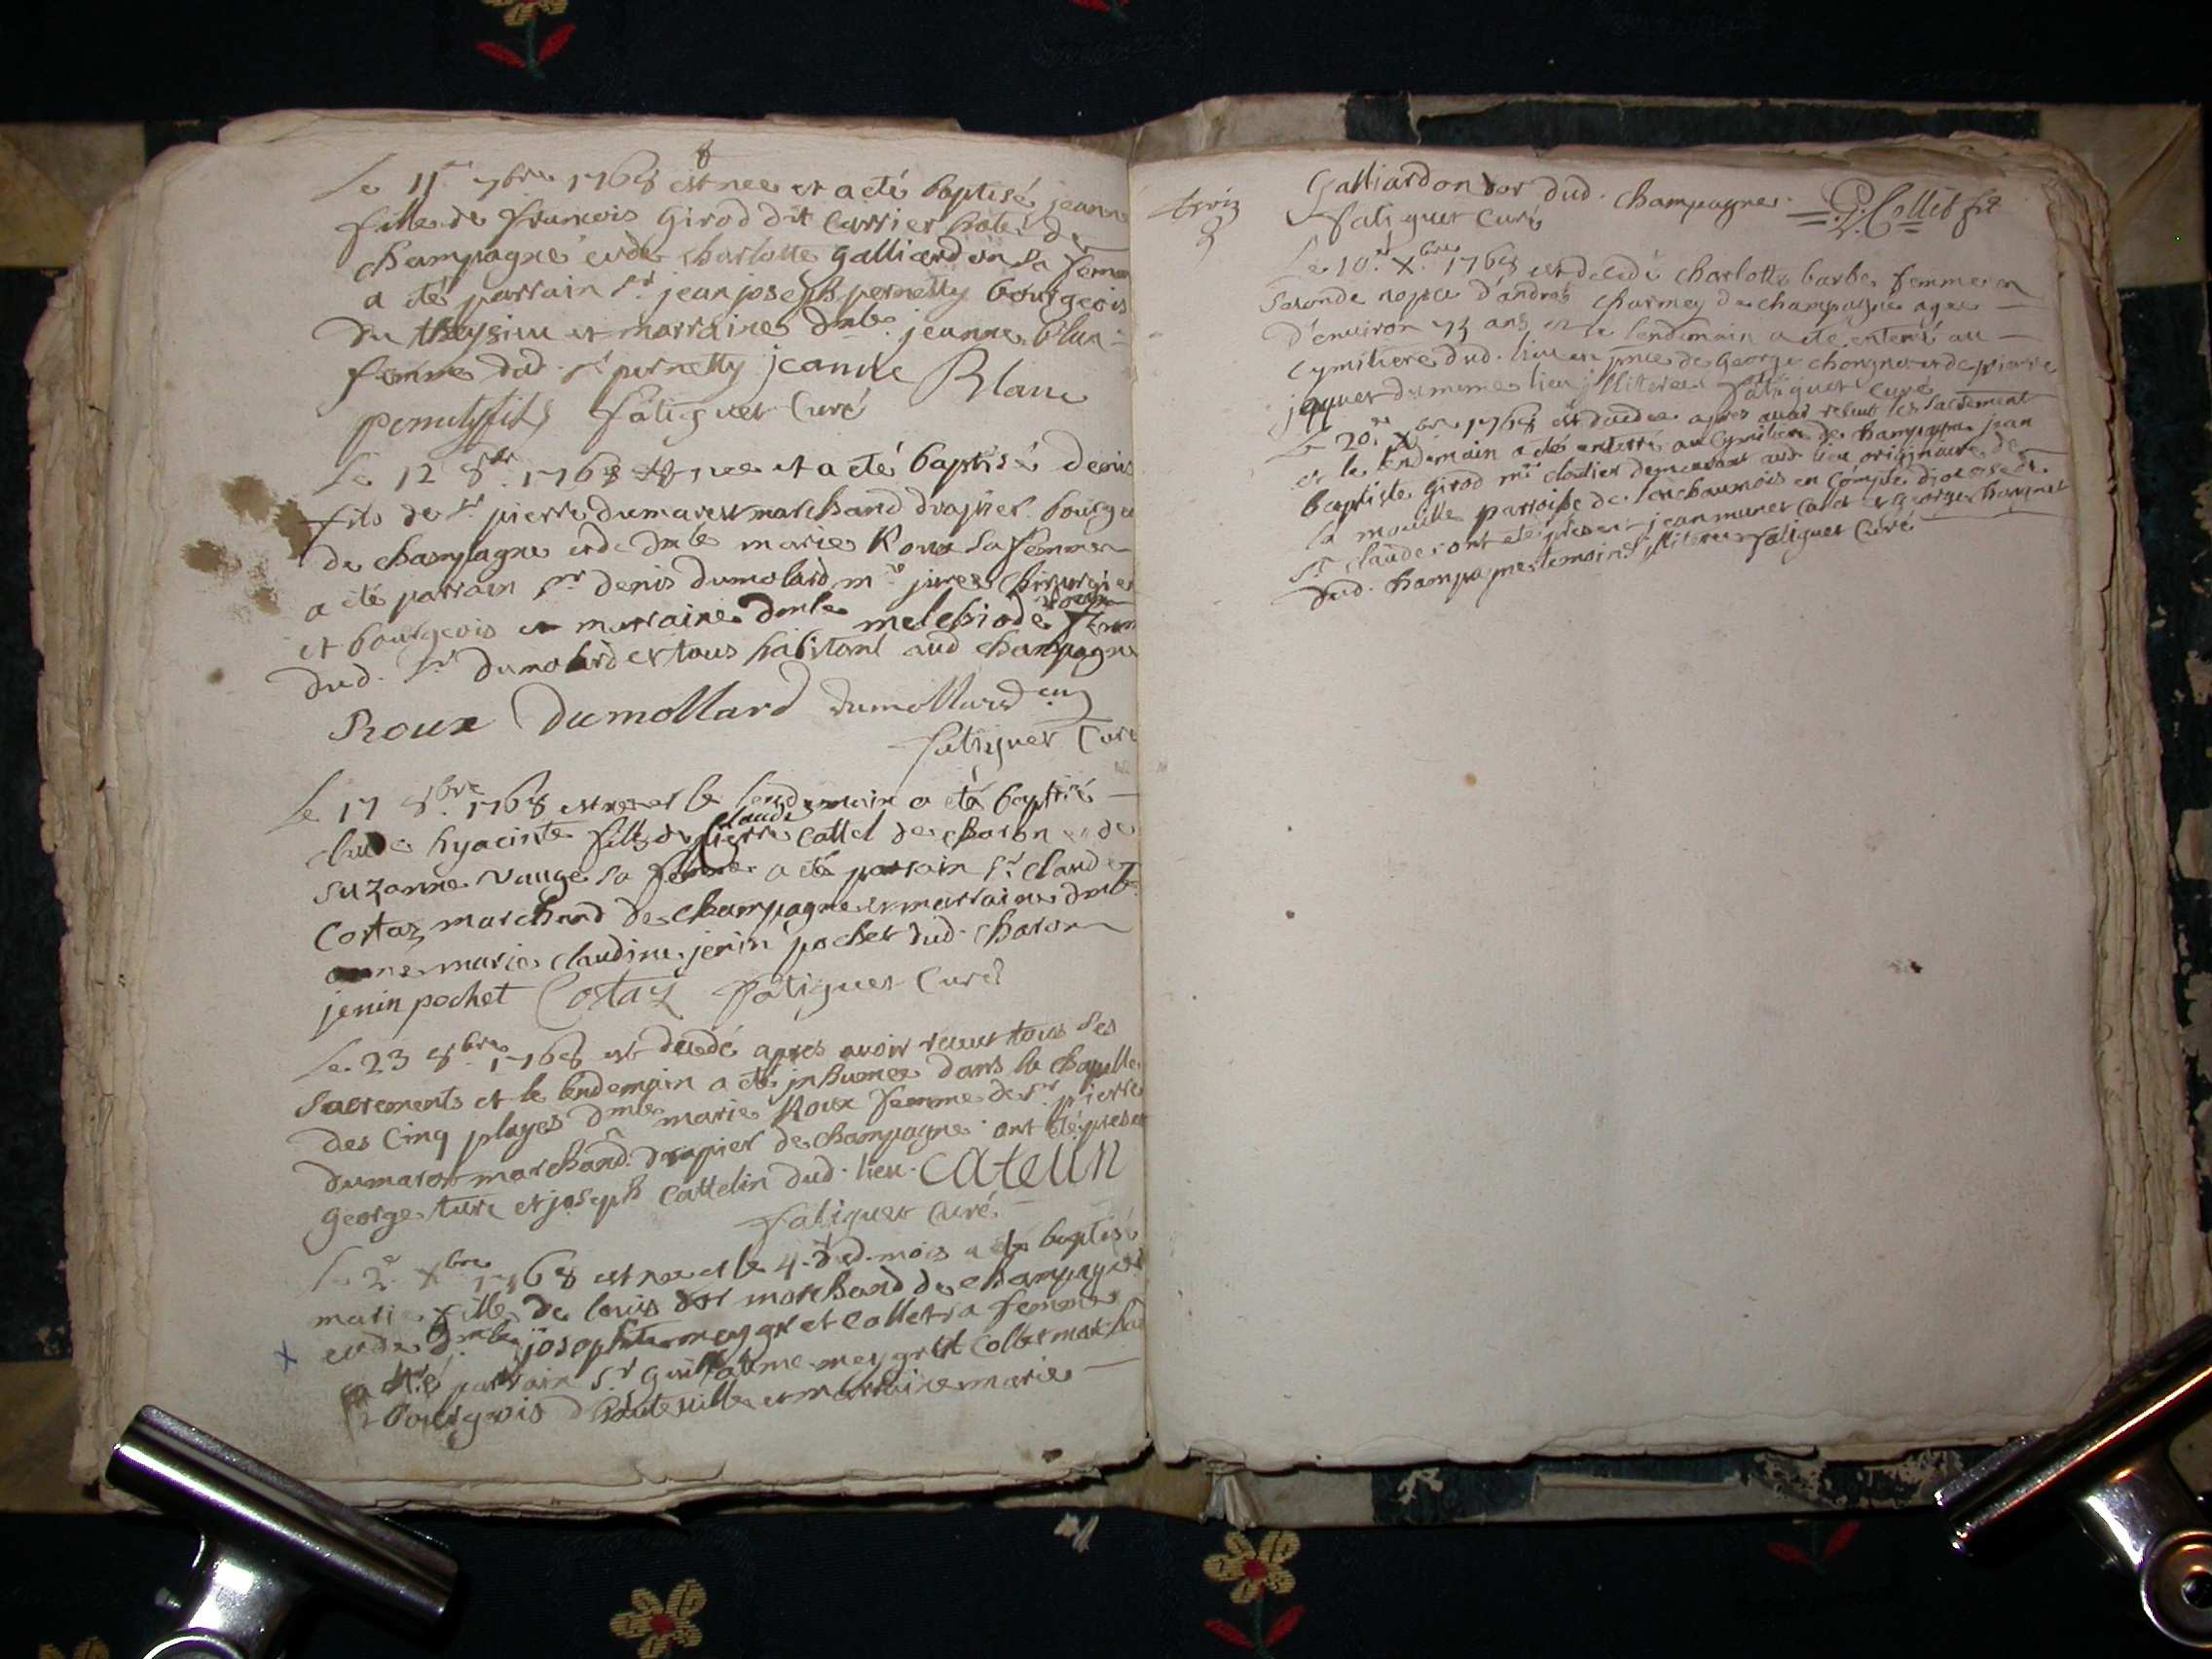 8
Le 11e 7bre 1768 est nee et a eté baptisé jeanne
fille de francois Girod dit Currier hote de
champagne et de charlotte Galliardon sa femme
a été parrain sr. jean joseph pernetty bourgeois
du theysieu et marraine dmlle. jeanne blan-
femme dud. sr pernetty jeanne Blanc
fatiguet Curé
Le 12 8bre. 1768 est nee et a eté baptisé denis
fils de sr. pierre dumarest marchand drapier bourge
de champagne et de dmlle marie Roux sa femme
a eté parrain sr denis dumolard me. juré chirurgien
et bourgeois et marraine dmlle melchiode Roux femme
dud. sr. dumolard et tous habitant aud champagne
Roux Dumollard dumollard
fatiguet Curé
Le 17 8bre. 1768 est ne et le lendemain a eté baptisé
claude hyacinte fils de claude pierre cattel de charon et de
suzanne vauge sa femme a eté parrain sr. claude
Costaz marchand de champagne et marraine dmlle
anne marie claudine jenin pochet dud. charon
jenin pochet Costaz fatiguet Curé
Le 23 8bre 1768 est decedé apres avoir recut tous ses
sacrements et le lendemain a eté inhumee dans la chapelle
des Cinq playes dmlle marie Roux femme de sr. pierre
dumarest marchand drapier de champagne. ont eté present
george ture et joseph cattelin dud. lieu. catelin
fatiguet Curé
Le 2e. Xbre 1768 est nee et le 4. dud. mois a eté baptisé
marie fille de louis dor marchand de champagne
x et de dmlle josephte meygret Collet sa femme
a eté parrain sr. Guillaume meygret Collet marchand
bourgeois d'hauteville et marraine marie
treiz
Galliardon dor dud. champagne. = G. Collet =
fatiguet Curé
Le 10e. Xbre 1768 est decedé charlotte barbe femme en
seconde nopce d'andré charmey de champagne agee
d'environ 73 ans et le lendemain a eté enterré au
Cymitiere dud. lieu en pnce de George chongnet et de pierre
jaquet du meme lieu illiteres fatiguet Curé
Le 20e Xbre 1768 est decedee apres avoir recut les sacrement
et le lendemain a eté enterré au Cymitiere de champagne jean
baptiste Girod me cloutier demeurant aud. lieu originaire de
la mouille parroisse de lonchaumois en Comté diocese de
st. claude ont eté present jean munet Carel et george chongnet
dud. champagne temoins illiteres fatiguet Curé